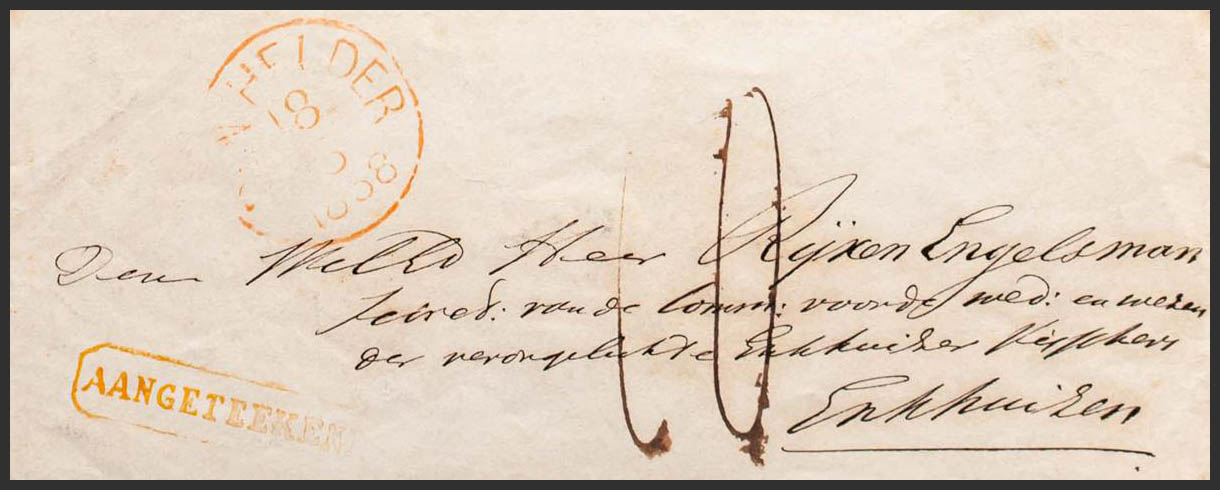 HELDER
18
1858
Den WelEd Heer Rijxen Engelsman
Secred: van de Comm: voor de wed: en wezen
der verongelukte Enkhuizer Visschers
Enkhuizen
AANGETEEKEN